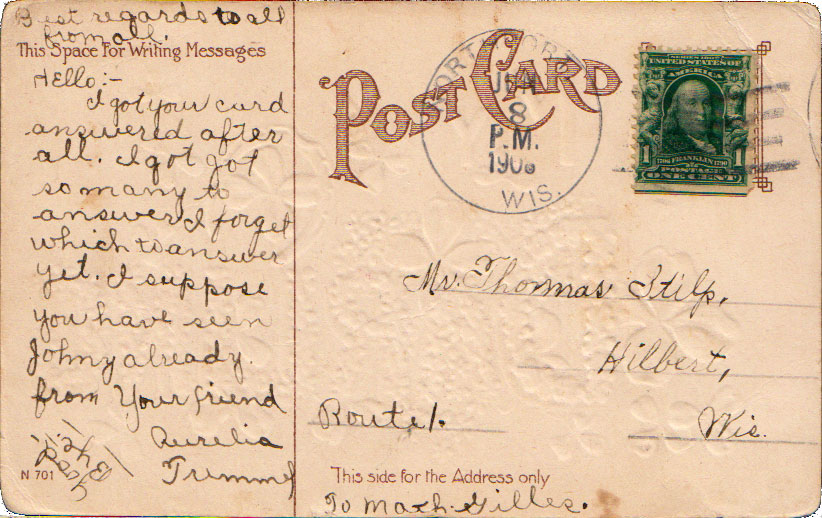 Best regards to all
from all.
This Space For Writing Messages
Hello:-
I got your card
answered after
all. I got got
so many to
answer I forget
which to answer
yet. I suppose
you have seen
Johny already.
from Your friend
Aurelia
Tremmel
Good
Bye.
N 701
POST CARD
JAN
8
P.M.
WIS.
SERIES 1902
UNITED STATES OF
AMERICA
1706 FRANKLIN 1790
1 1
POSTAGE
ONE CENT
Mr. Thomas Stilp,
Hilbert,
Route 1. Wis.
This side for the Address only
To Math. Gilles.